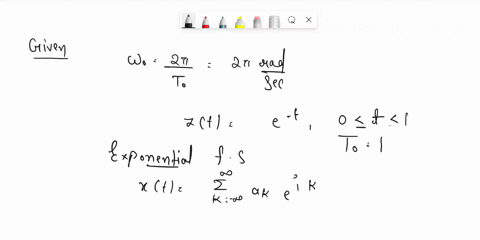 Given
ω₀ = 2π/T₀ = 2π rad/sec
x(t) = e^-t, 0 ≤ t < 1
T₀ = 1
Exponential f.s
x(t) = ∞ Σ k=-∞ ak e^jk